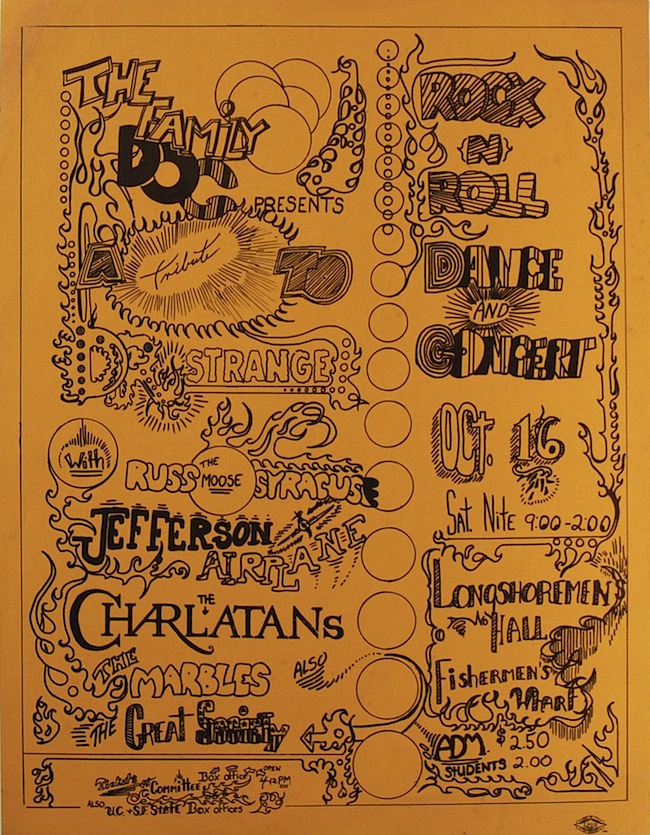 THE
FAMILY
DOG
PRESENTS
A Tribute TO
DR. STRANGE
With
RUSS THE MOOSE SYRACUSE
JEFFERSON
AIRPLANE
THE
CHARLATANS
THE
MARBLES
ALSO
THE Great Society
OPEN
Box office
4-12 PM
Committee
ALSO
U.C. + S.F. STATE Box offices
ROCK
N
ROLL
DANCE
AND
CONCERT
OCT. 16
Sat. Nite 9:00-2:00
LONGSHOREMEN'S
HALL
FISHERMEN'S
WHARF
ADM. $2.50
STUDENTS 2.00